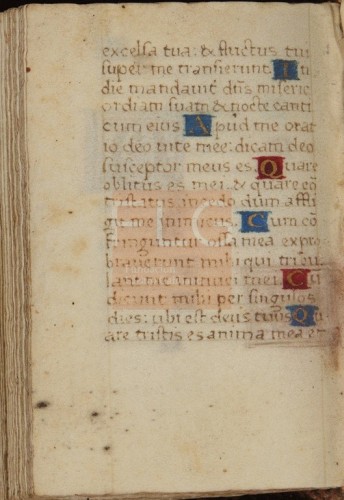 excelsa tua: & fluctus tui
super me transierunt. In
die mandavit dñs miseric
ordiam suam & nocte canti
cum eius Apud me orat
io deo vite mee: dicam deo
susceptor meus es. Quare
oblitus es mei. & quare
tristatus incedo dum affli
git me inimicus. Cum cõ
fringuntur ossa mea expro
braverunt mihi qui tribu
lant me inimici mei. Cu
dicunt mihi per singulos
dies: ubi est deus tuus Qu
are tristis es anima mea et